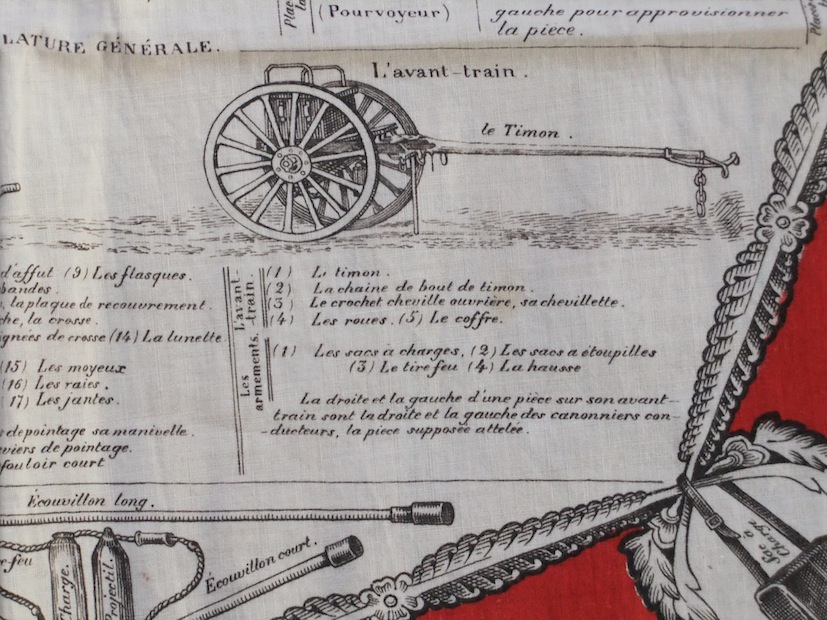 (Pourvoyeur)
gauche pour approvisionner
la piece.
LATURE GÉNÉRALE.
L'avant-train.
le Timon.
d'affut (9) Les flasques.
bandes.
, la plaque de recouvrement.
che, la crosse.
ignées de crosse (14) La lunette
(15) Les moyeux
(16) Les raies.
17) Les jantes.
de pointage sa manivelle.
viers de pointage.
fouloir court
L'avant-
train.
(1) Le timon.
(2) La chaine de bout de timon.
(3) Le crochet cheville ouvrière, sa chevillette.
(4) Les roues. (5) Le coffre.
Les
armements.
(1) Les sacs à charges, (2) Les sacs a étoupilles
(3) Le tire feu (4) La hausse
La droite et la gauche d'une pièce sur son avant-
train sont la droite et la gauche des canonniers con-
-ducteurs, la piece supposée attelée.
Écouvillon long.
feu
Charge.
Projectil.
Écouvillon court.
Sac à
Charge